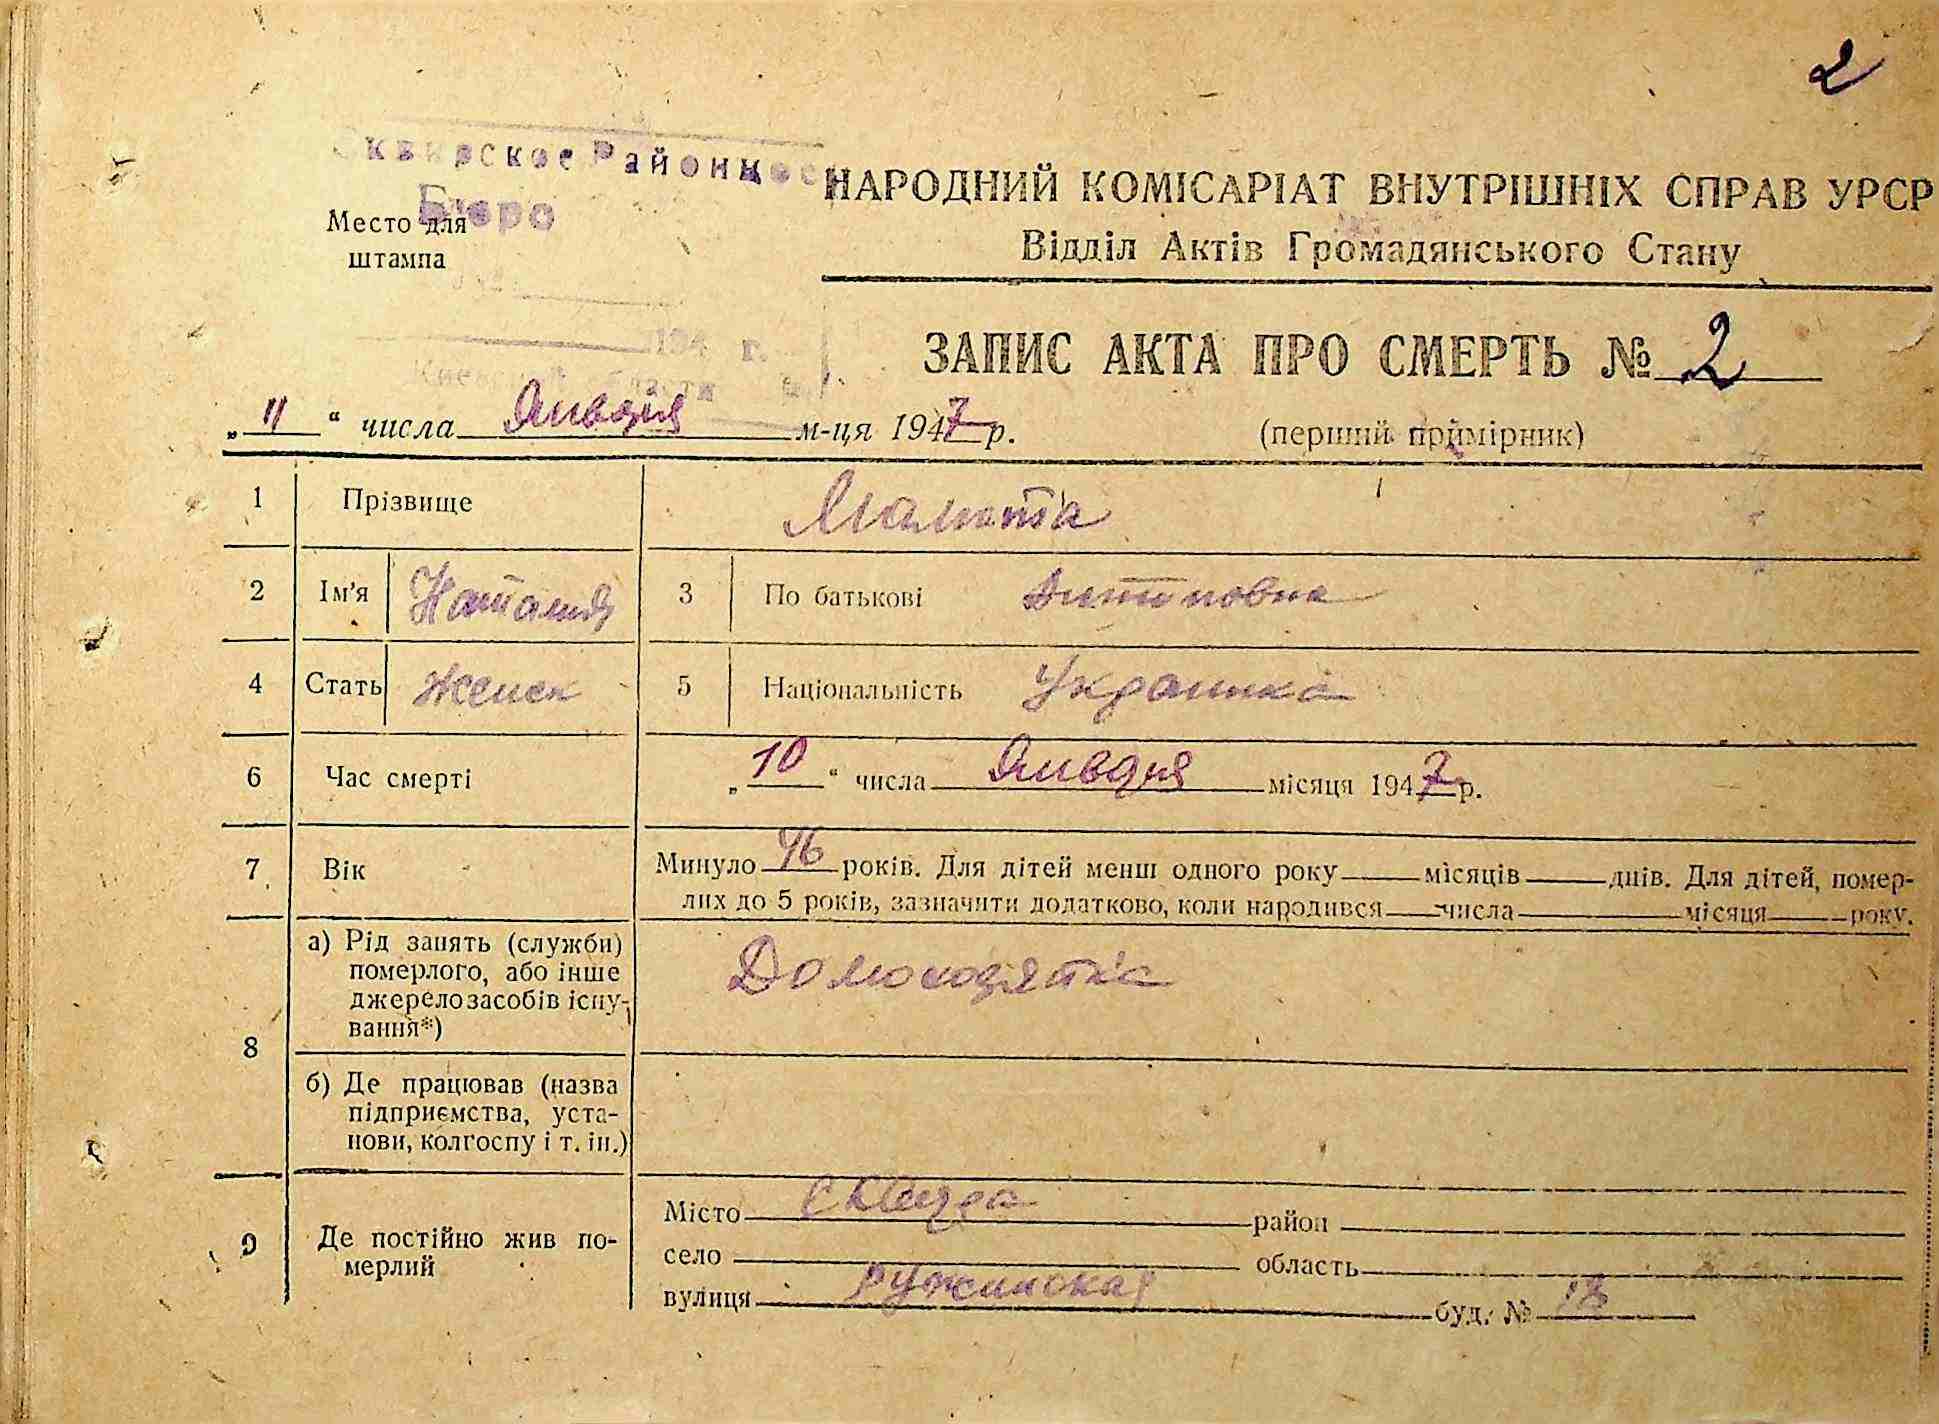 2
Сквирское Районное
Бюро
Место для
штампа
194 г.
НАРОДНИЙ КОМІСАРІАТ ВНУТРІШНІХ СПРАВ УРСР
Відділ Актів Громадянського Стану
ЗАПИС АКТА ПРО СМЕРТЬ № 2
„11“ числа Января м-ця 1947 р. (перший примірник)
1 Прізвище Малюта
2 Ім’я Наталия 3 По батькові
4 Стать Женск 5 Національність Украинка
6 Час смерті „10“ числа Января місяця 1947 р.
7 Вік Минуло 76 років. Для дітей менш одного року місяців днів. Для дітей, помер-
лих до 5 років, зазначити додатково, коли народився числа місяця року.
8 а) Рід занять (служби)
померлого, або інше
джерело засобів існу-
вання*) Домохозяйка
б) Де працював (назва
підприємства, уста-
нови, колгоспу і т. ін.)
9 Де постійно жив по-
мерлий
Місто Сквира район
село область
вулиця Ружинская буд. № 18